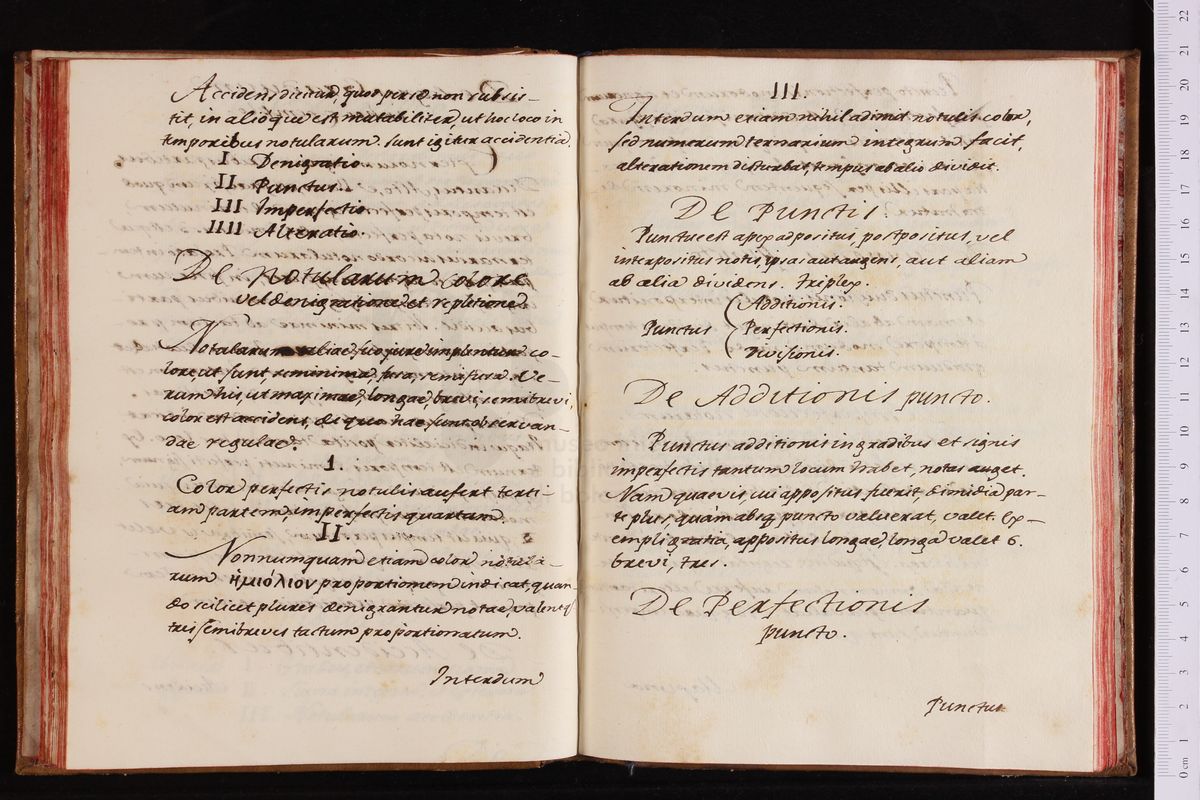 Accidens dicitur, quod per se non subsis-
tit, in alio que est mutabiliter, ut hoc loco in
temporibus notularum. Sunt igitur accidentia
I Denigratio
II Punctus.
III Imperfectio
IIII Alteratio
De Notularum colore
vel denigratione et repletione
Notularum aliae suo jure implentur co-
lore, ut sunt, seminima, fusa, semifusa. Ve-
rum his, ut maximae, longae, brevi, semibrevi,
color est accidens, de quo hae sunt observan-
dae regulae.
1.
Color perfectis notulis aufert terti-
am partem, imperfectis quartam.
II
Nonnumquam etiam color notula-
rum ἡμιόλιον proportionem indicat, quan-
do scilicet plures denigrantur notae, valentq
tres semibreves tactum proportionatum.
Interdum
III.
Interdum etiam nihil adimit notulis color,
sed numerum ternarium integrum facit,
alterationem disturbat, tempus ab alio dividit.
De Punctis.
Punctus est apex adpositus, postpositus, vel
interpositus notis, ipsas aut augens, aut aliam
ab alia dividens. triplex.
Additionis.
Punctus Perfectionis.
Divisionis.
De Additionis puncto.
Punctus additionis in gradibus et signis
imperfectis tantum locum habet, notas auget.
Nam quaevis, cui appositus fuerit, dimidia par-
te plus, quàm absq puncto valuerat, valet. Ex-
empli gratia, appositus longae, longa valet 6.
brevi, tres.
De Perfectionis
puncto.
Punctus